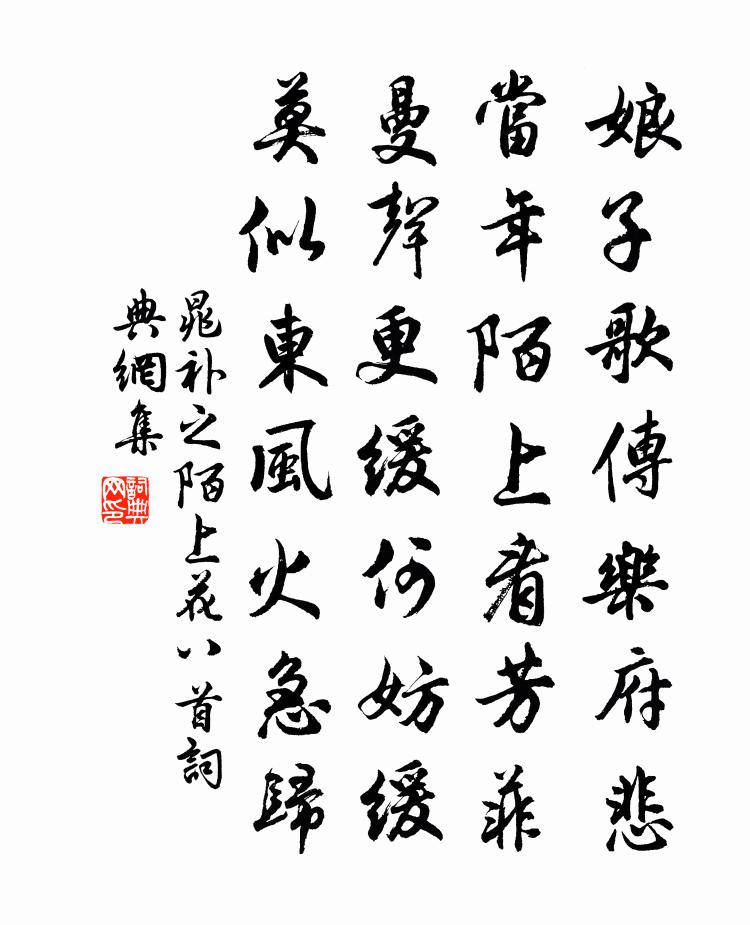 娘子歌傳樂府悲
當年陌上看芳菲
曼聲更緩何妨緩
莫似東風火急歸
晁补之陌上花八首詞
典網集
詞典网印